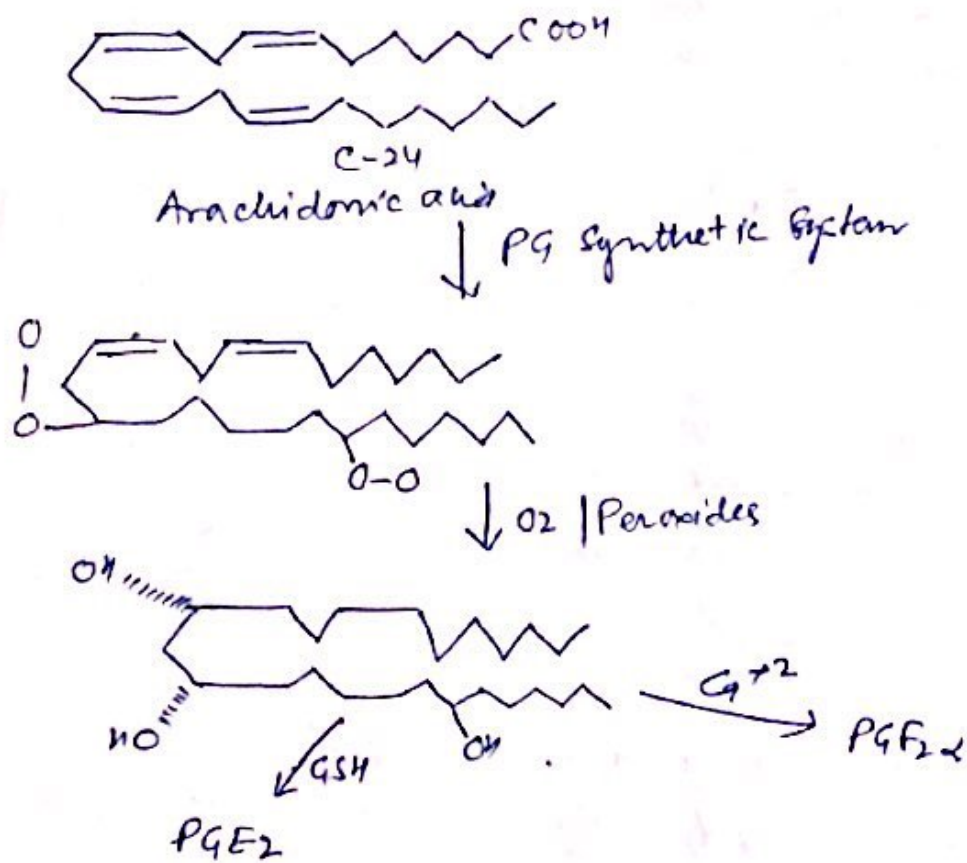 COOH
C-24
Arachidonic acid
PG Synthetic System
O
O
O-O
O2 | Peroxides
OH
HO
OH
Ca+2
PGF2α
GSH
PGE2